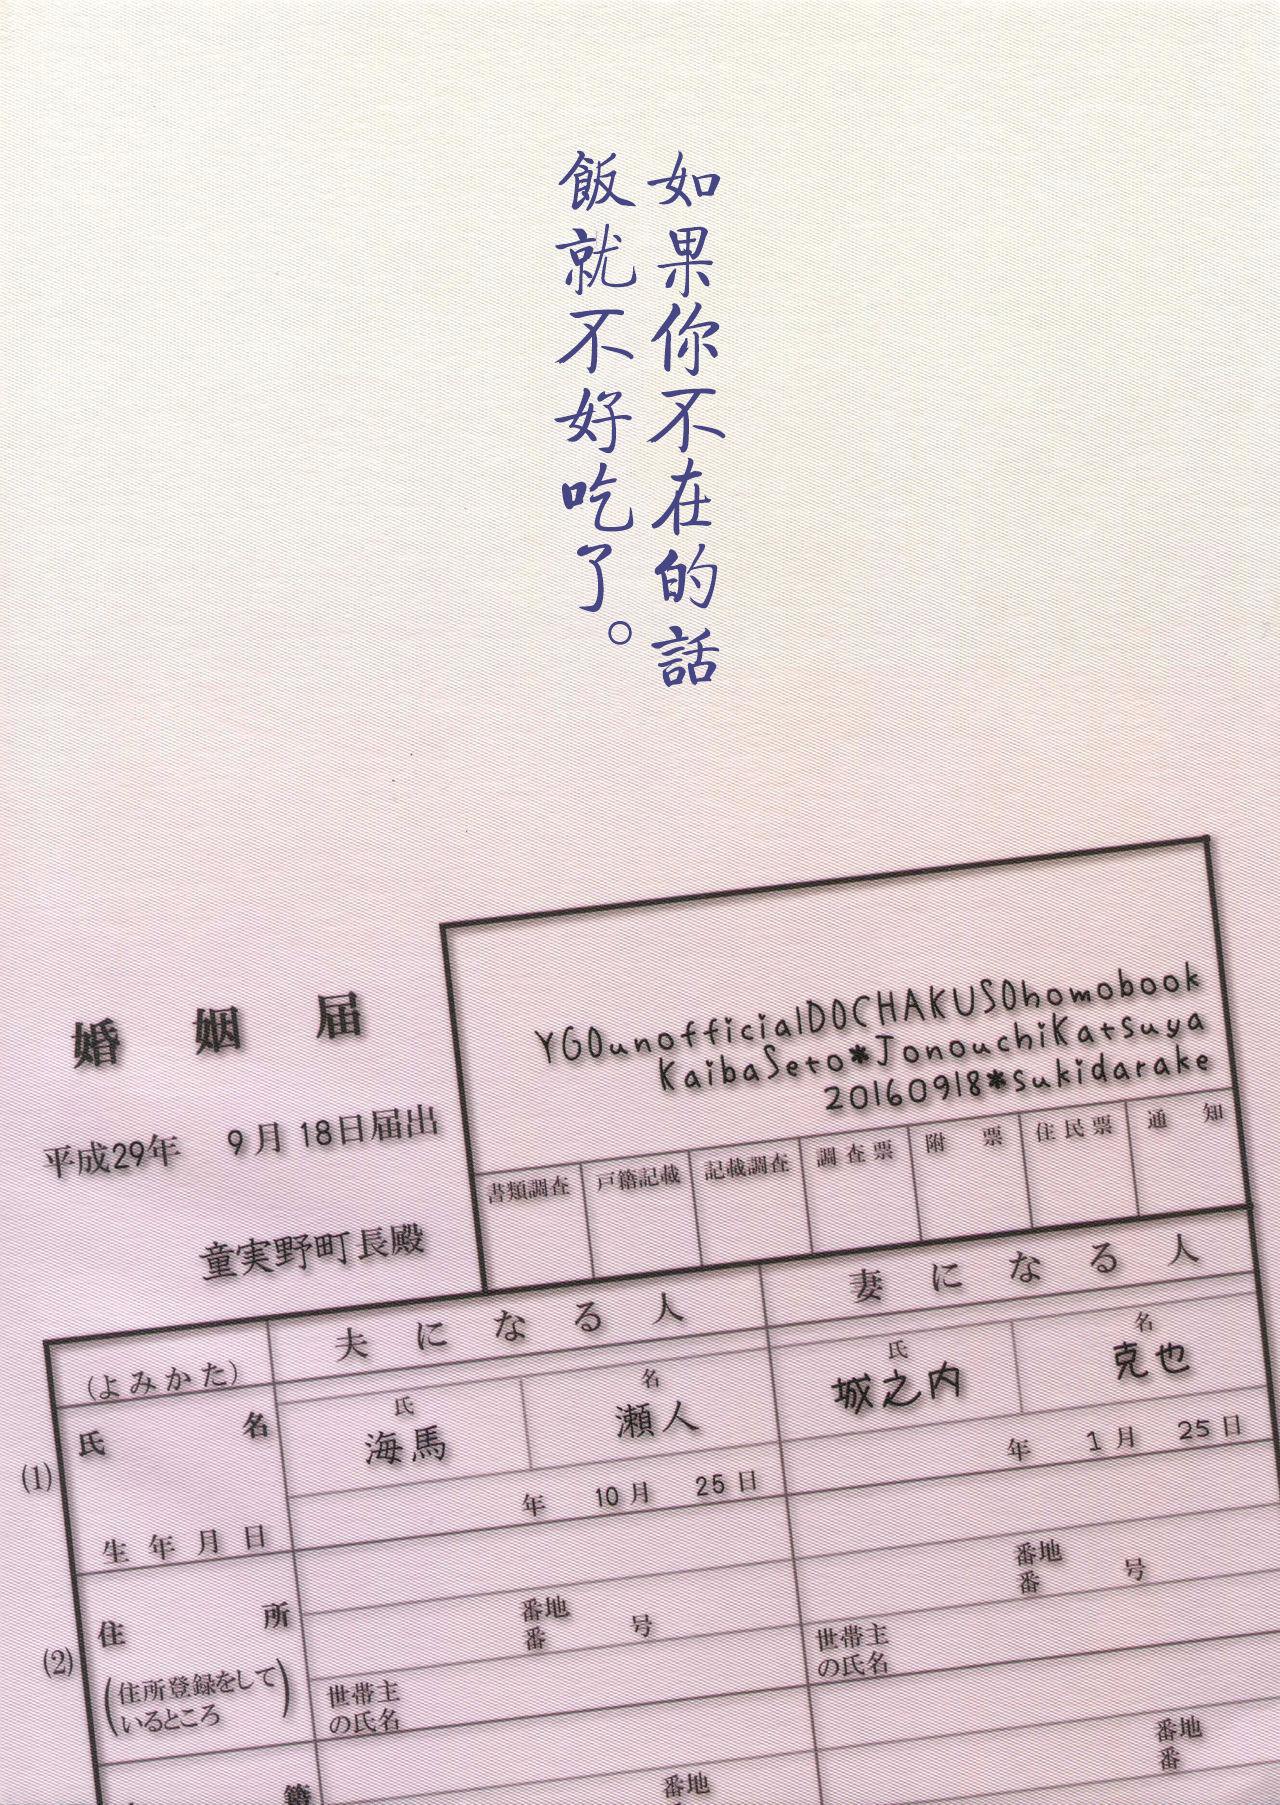 如果你不在的話
飯就不好吃了。
YGOunofficialDOCHAKUSOhomobook
KaibaSeto*JonouchiKatsuya
20160918*sukidarake
婚姻届
平成29年 9月18日届出
童実野町長殿
書類調査 戸籍記載 記載調査 調査票 附票 住民票 通知
夫になる人 妻になる人
(よみかた)
氏名 氏 名 氏 名
海馬 瀬人 城之内 克也
生年月日 年 10月 25日 年 1月 25日
(1)
住所 番地 番 号 番地 番 号
(2)
(住所登録をして
いるところ)
世帯主
の氏名
世帯主
の氏名
籍 番地 番 番地 番